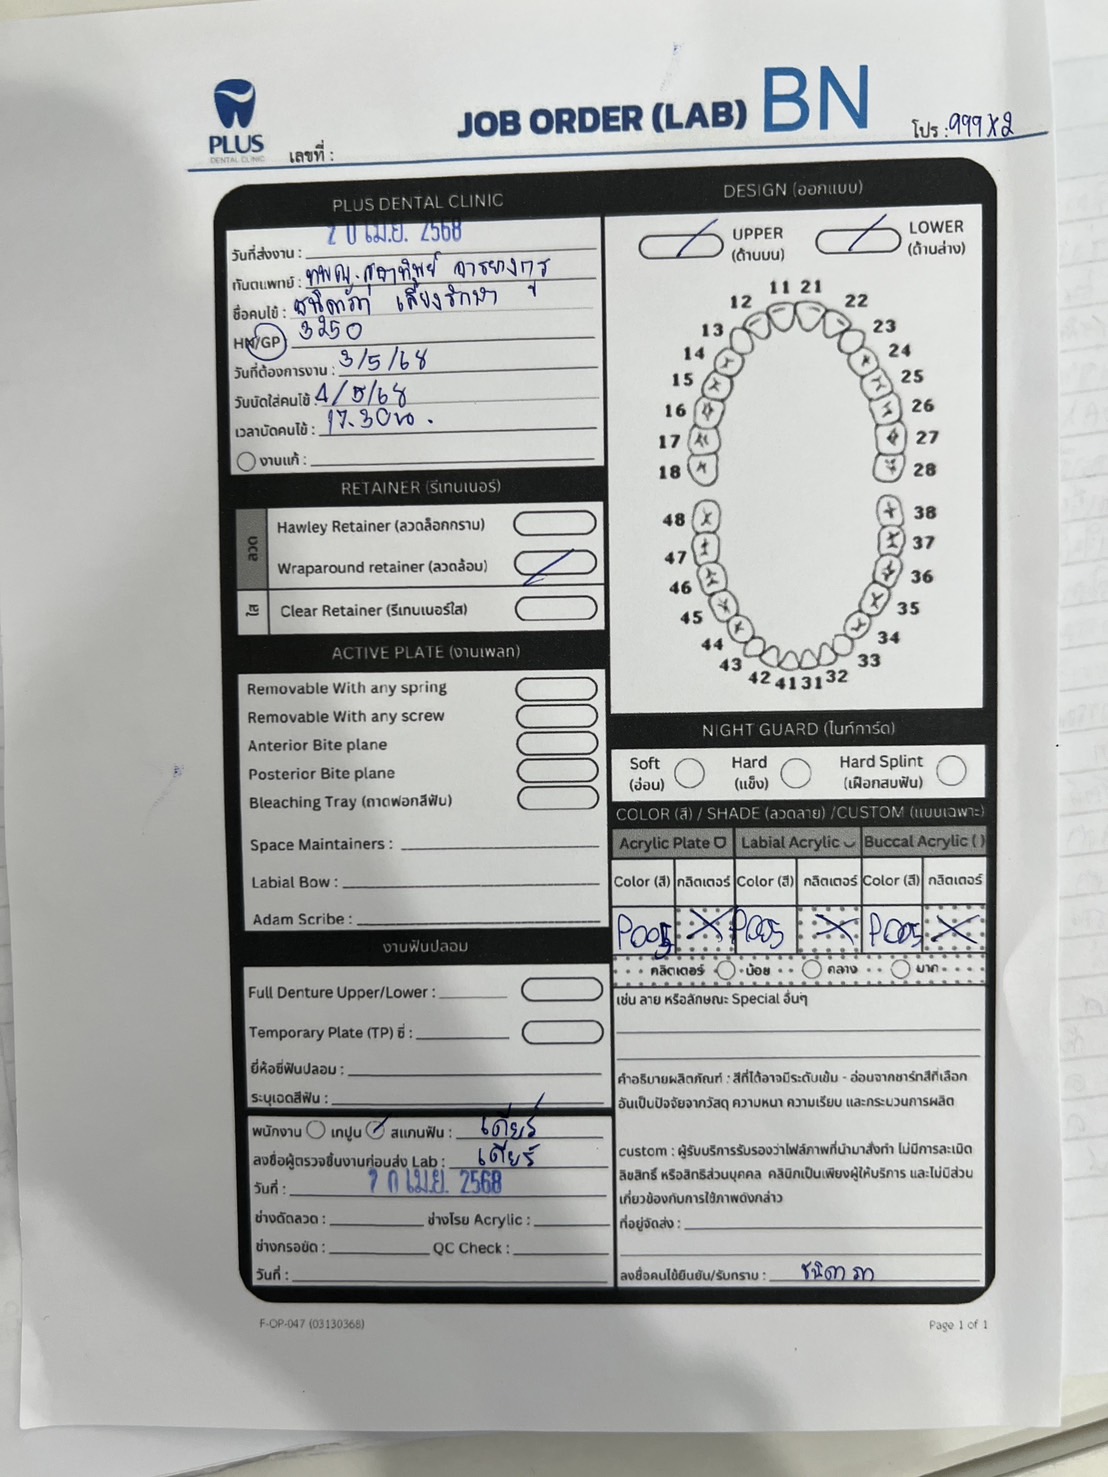 PLUS
DENTAL CLINIC
เลขที่ :
JOB ORDER (LAB) BN
โปร : 999 x 2
PLUS DENTAL CLINIC
วันที่ส่งงาน : 20 เม.ย. 2568
ทันตแพทย์ : ทพญ.
ชื่อคนไข้ :
HN/GP 3250
วันที่ต้องการงาน : 3/5/68
วันนัดใส่คนไข้ : 4/5/68
เวลานัดคนไข้ : 17.30น.
งานแก้ :
RETAINER (รีเทนเนอร์)
ลวด
Hawley Retainer (ลวดล็อคกราม)
Wraparound retainer (ลวดล้อม)
ใส
Clear Retainer (รีเทนเนอร์ใส)
ACTIVE PLATE (งานเพลท)
Removable With any spring
Removable With any screw
Anterior Bite plane
Posterior Bite plane
Bleaching Tray (ถาดฟอกสีฟัน)
Space Maintainers :
Labial Bow :
Adam Scribe :
งานฟันปลอม
Full Denture Upper/Lower :
Temporary Plate (TP) ซี่ :
ยี่ห้อซี่ฟันปลอม :
ระบุเฉดสีฟัน :
พนักงาน เทปูน สแกนฟัน : เดียร์
ลงชื่อผู้ตรวจชิ้นงานก่อนส่ง Lab : เดียร์
วันที่ : 20 เม.ย. 2568
ช่างดัดลวด : ช่างโรย Acrylic :
ช่างกรอขัด : QC Check :
วันที่ :
DESIGN (ออกแบบ)
UPPER
(ด้านบน)
LOWER
(ด้านล่าง)
11 21
12 22
13 23
14 24
15 25
16 26
17 27
18 28
48 38
47 37
46 36
45 35
44 34
43 33
42 41 31 32
NIGHT GUARD (ไนท์การ์ด)
Soft
(อ่อน)
Hard
(แข็ง)
Hard Splint
(เฝือกสบฟัน)
COLOR (สี) / SHADE (ลวดลาย) /CUSTOM (แบบเฉพาะ)
Acrylic Plate Labial Acrylic Buccal Acrylic ( )
Color (สี) กลิตเตอร์ Color (สี) กลิตเตอร์ Color (สี) กลิตเตอร์
P005 X P005 X P005 X
กลิตเตอร์ น้อย กลาง มาก
เช่น ลาย หรือลักษณะ Special อื่นๆ
คำอธิบายผลิตภัณฑ์ : สีที่ได้อาจมีระดับเข้ม - อ่อนจากชาร์ทสีที่เลือก
อันเป็นปัจจัยจากวัสดุ ความหนา ความเรียบ และกระบวนการผลิต
custom : ผู้รับบริการรับรองว่าไฟล์ภาพที่นำมาสั่งทำ ไม่มีการละเมิด
ลิขสิทธิ์ หรือสิทธิส่วนบุคคล คลินิกเป็นเพียงผู้ให้บริการ และไม่มีส่วน
เกี่ยวข้องกับการใช้ภาพดังกล่าว
ที่อยู่จัดส่ง :
ลงชื่อคนไข้ยืนยัน/รับทราบ : ชนิดาภา
F-OP-047 (03130368)
Page 1 of 1